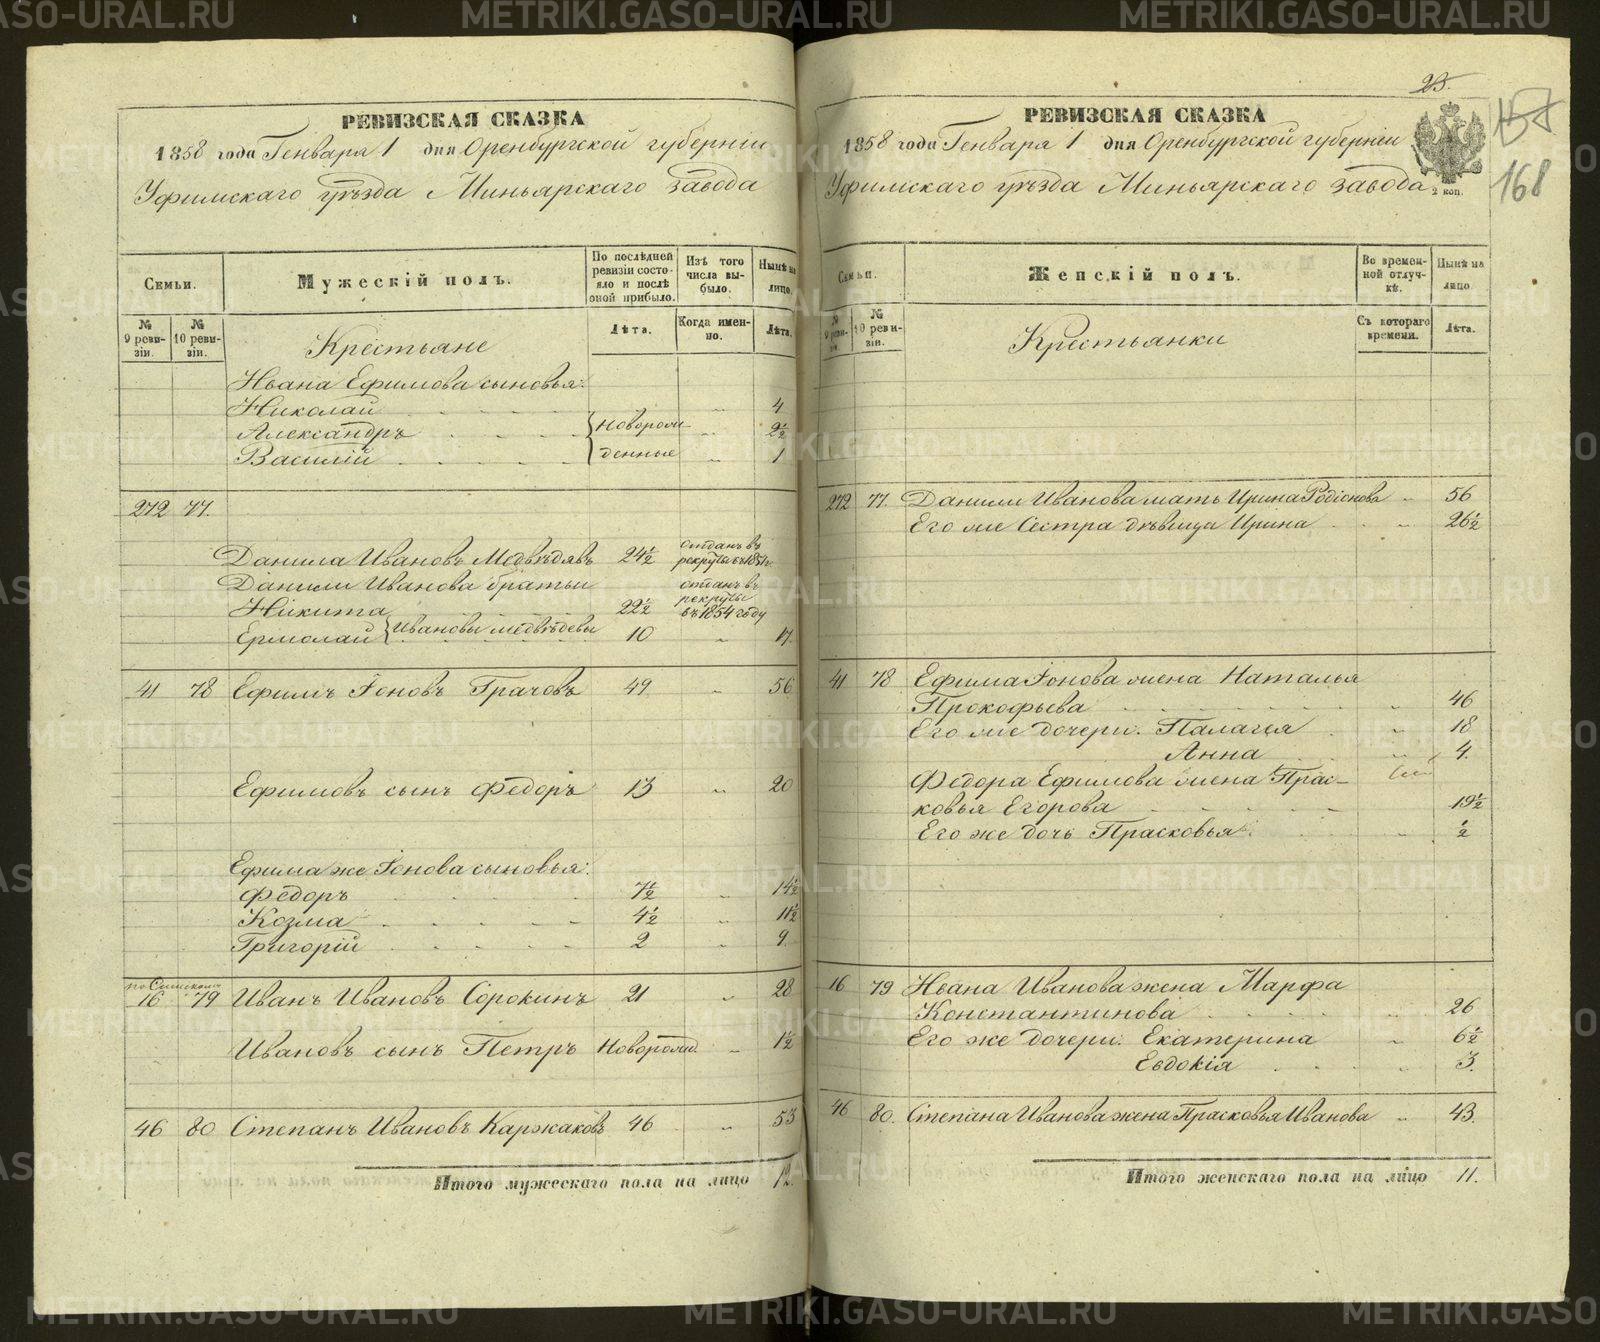 РЕВИЗСКАЯ СКАЗКА
1858 года Генваря 1 дня Оренбургской губерніи
Уфимскаго уѣзда Миньярскаго завода
Семьи.
Мужескій полъ.
По послѣдней ревизіи состояло и послѣ оной прибыло.
Изъ того числа выбыло.
Нынѣ на лицо.
№ 9 ревизіи.
№ 10 ревизіи.
Крестьяне
Лѣта.
Когда именно.
Лѣта.
Ивана Ефимова сыновья:
Николай 4
Александръ новорож- 2½
Василій денные 1
272 77.
Данила Ивановъ Медвѣдевъ 24½ отданъ въ рекруты въ 1854 г.
Данилы Иванова братьи
Никита 22½ отданъ въ рекруты въ 1854 году
Ермолай Ивановы Медвѣдевы 10 17.
41 78 Ефимъ Іоновъ Грачовъ 49 56
Ефимовъ сынъ Федоръ 13 20
Ефима же Іонова сыновья:
Федоръ 7½ 14½
Козма 4½ 11½
Григорій 2 9.
16 79 Иванъ Ивановъ Сорокинъ 21 28
Ивановъ сынъ Петръ Новорожд. 1½
46 80 Степанъ Ивановъ Каржаковъ 46 53
Итого мужескаго пола на лицо 12.
23.
157
168
РЕВИЗСКАЯ СКАЗКА
1858 года Генваря 1 дня Оренбургской губерніи
Уфимскаго уѣзда Миньярскаго завода
2 коп.
Семьи.
Женскій полъ.
Во временной отлучкѣ.
Нынѣ на лицо
№ 9 ревизіи.
№ 10 ревизіи.
Крестьянки
Съ котораго времени.
Лѣта.
272 77. Данилы Иванова мать Ирина Родіонова 56
Его же Сестра дѣвица Ирина 26½
41 78 Ефима Іонова жена Наталья
Прокофьева 46
Его же дочери: Палагея 18
Анна 4.
Федора Ефимова жена Прас-
ковья Егорова 19½
Его же дочь Прасковья ½
16 79 Ивана Иванова жена Марфа
Константинова 26
Его же дочери: Екатерина 6½
Евдокія 3.
46 80. Степана Иванова жена Прасковья Иванова 43.
Итого женскаго пола на лицо 11.
METRIKI.GASO-URAL.RU